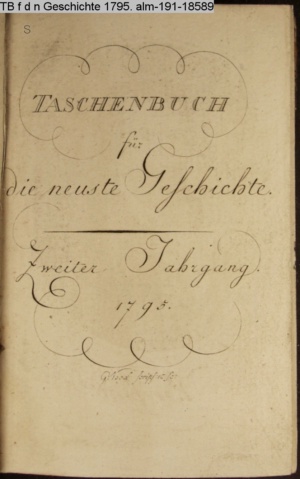 TB f d n Geschichte 1795. alm-191-18589
S
TASCHENBUCH
für
die neuste Geschichte.
Zweiter Jahrgang.
1795.